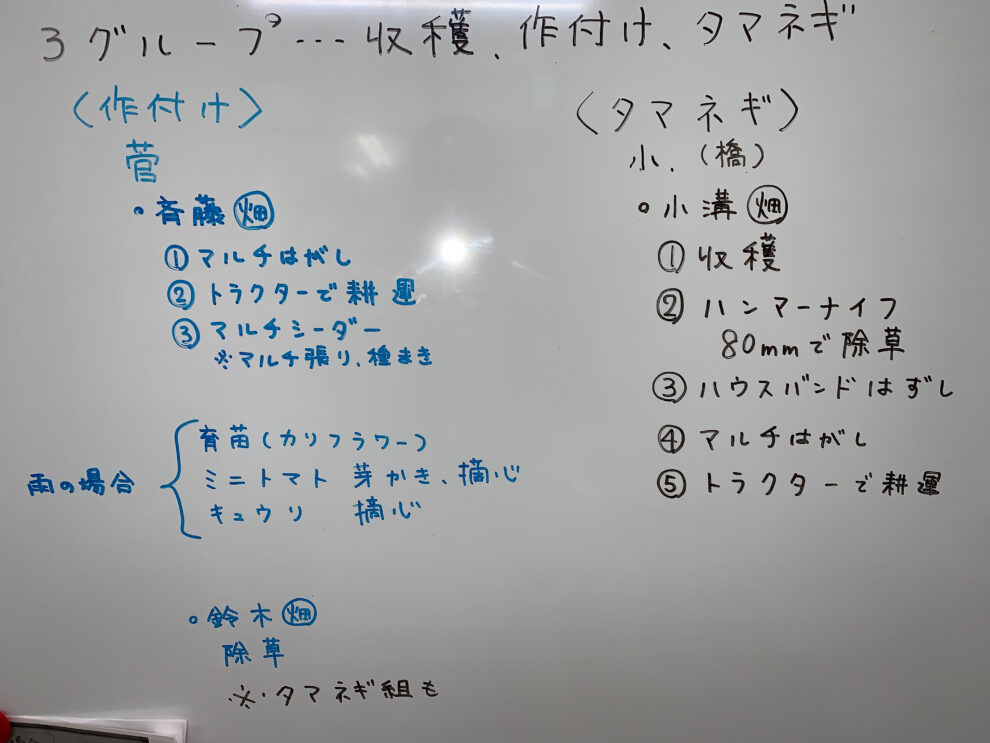 3グループ…収穫、作付け、タマネギ
(作付け)
菅
・斉藤 畑
①マルチはがし
②トラクターで耕運
③マルチシーダー
※マルチ張り、種まき
雨の場合
育苗(カリフラワー)
ミニトマト 芽かき、摘心
キュウリ 摘心
・鈴木 畑
除草
※・タマネギ組も
(タマネギ)
小、(橋)
・小溝 畑
①収穫
②ハンマーナイフ
80mmで除草
③ハウスバンドはずし
④マルチはがし
⑤トラクターで耕運